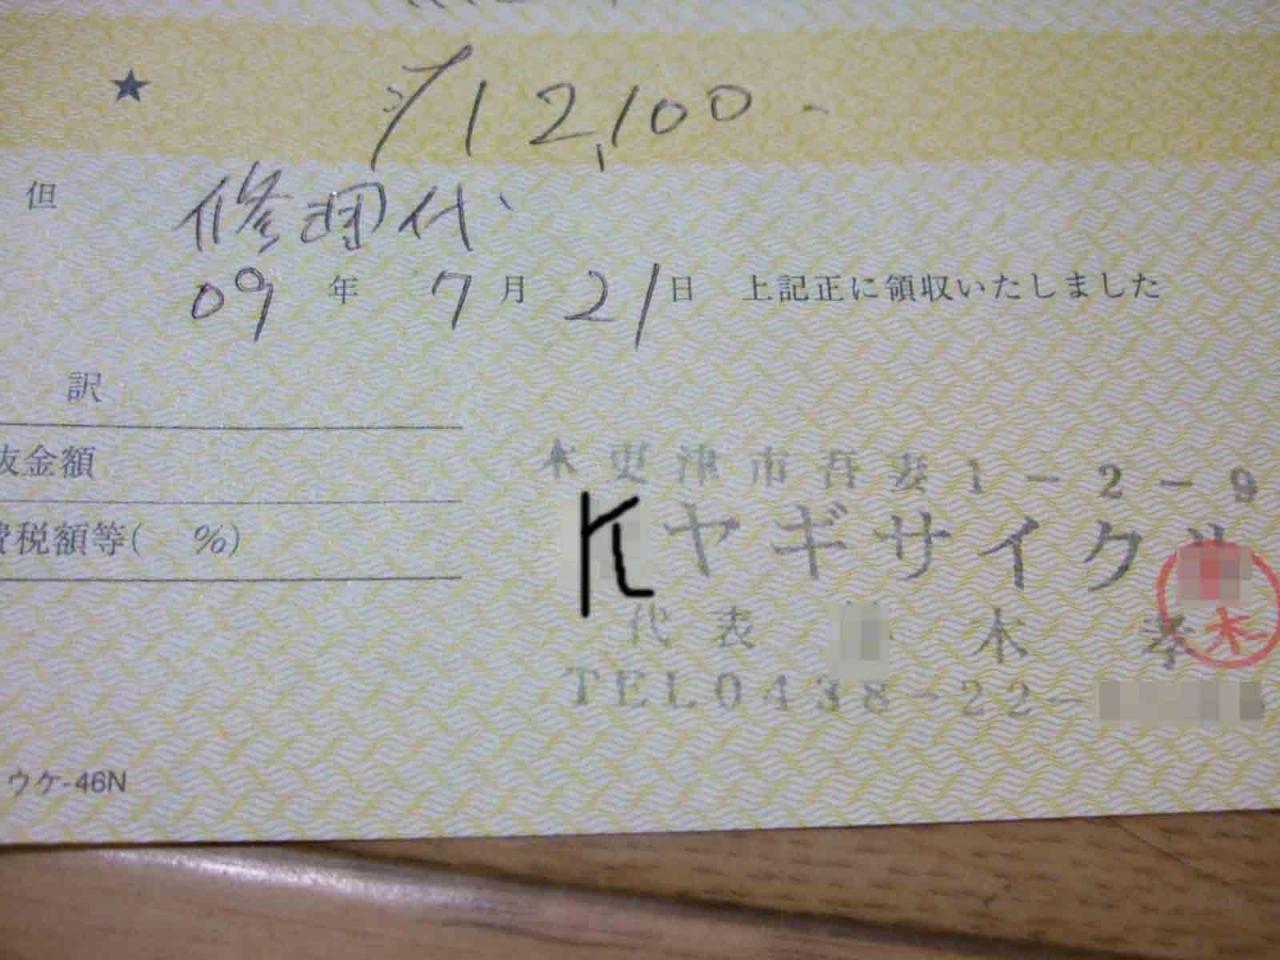 ★ ¥12,100.-
但 修理代
09年 7月 21日 上記正に領収いたしました
訳
抜金額
費税額等( %)
木更津市吾妻1-2-9
ヤギサイク
代表 木 孝
木
TEL0438-22-
ウケ-46N